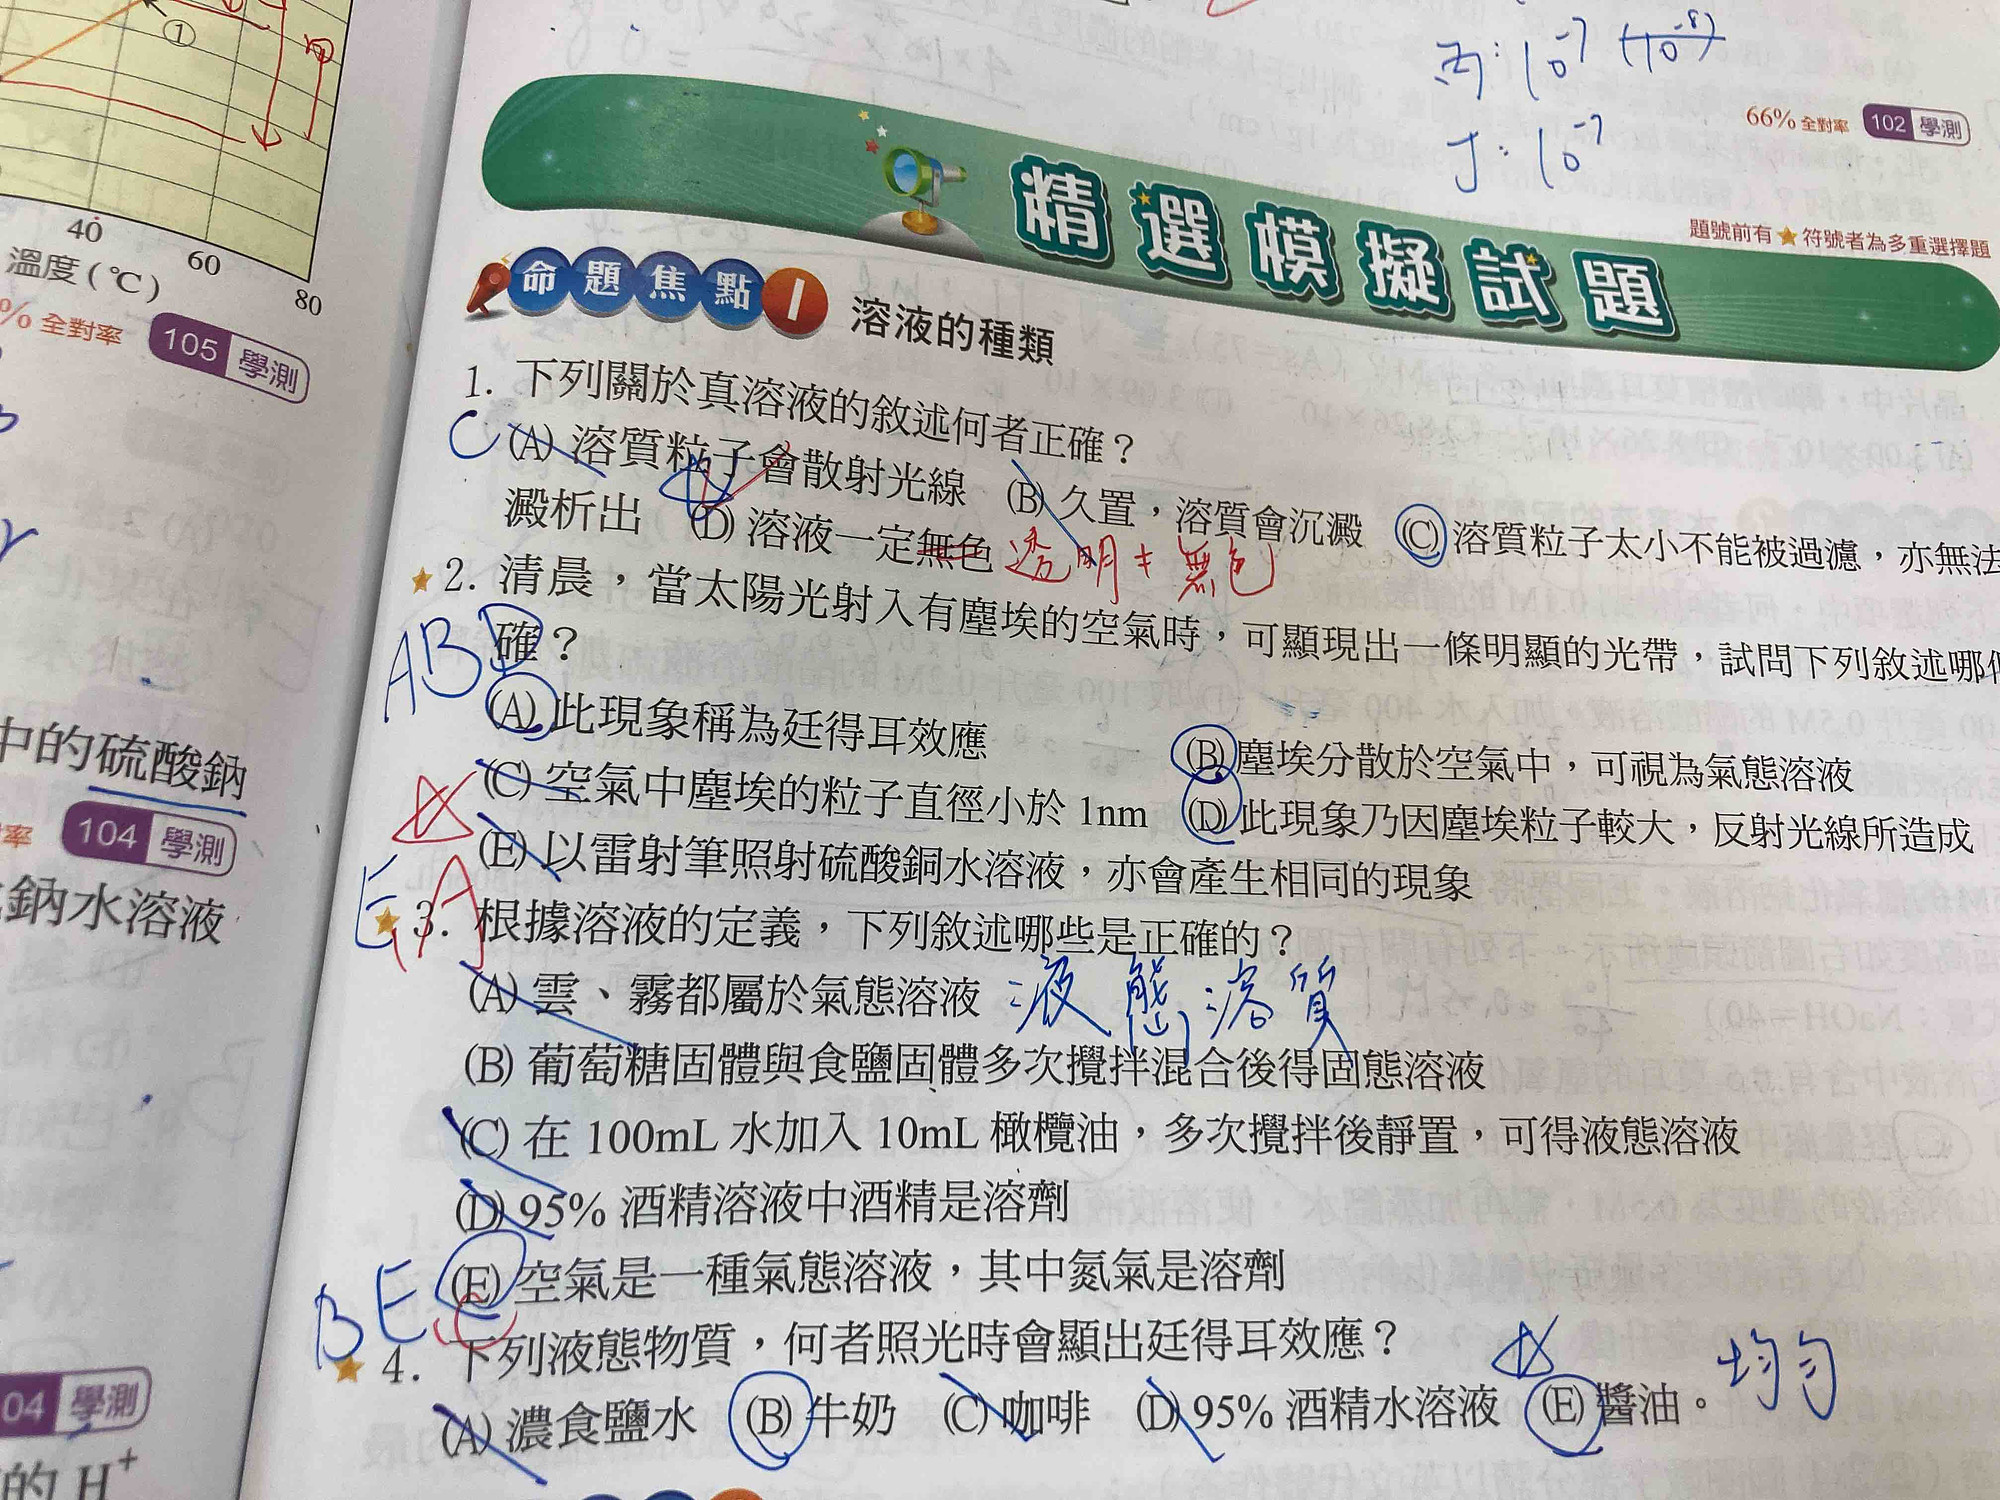 ①
甲
40
60
80
溫度(℃)
% 全對率 105 學測
中的硫酸鈉
率 104 學測
鈉水溶液
04 學測
的 H⁺
丙:10⁻⁷ (10⁻⁸)
丁:10⁻⁷
66% 全對率 102 學測
精選模擬試題
題號前有★符號者為多重選擇題
命題焦點1 溶液的種類
1. 下列關於真溶液的敘述何者正確?
C
(A) 溶質粒子會散射光線 (B) 久置,溶質會沉澱 (C) 溶質粒子太小不能被過濾,亦無法
澱析出 (D) 溶液一定無色 透明≠無色
★2. 清晨,當太陽光射入有塵埃的空氣時,可顯現出一條明顯的光帶,試問下列敘述哪
確?
ABD
(A) 此現象稱為廷得耳效應 (B) 塵埃分散於空氣中,可視為氣態溶液
(C) 空氣中塵埃的粒子直徑小於 1nm (D) 此現象乃因塵埃粒子較大,反射光線所造成
(E) 以雷射筆照射硫酸銅水溶液,亦會產生相同的現象
E,A
★3. 根據溶液的定義,下列敘述哪些是正確的?
(A) 雲、霧都屬於氣態溶液 液態溶質
(B) 葡萄糖固體與食鹽固體多次攪拌混合後得固態溶液
(C) 在 100mL 水加入 10mL 橄欖油,多次攪拌後靜置,可得液態溶液
(D) 95% 酒精溶液中酒精是溶劑
(E) 空氣是一種氣態溶液,其中氮氣是溶劑
BE,C
★4. 下列液態物質,何者照光時會顯出廷得耳效應?
(A) 濃食鹽水 (B) 牛奶 (C) 咖啡 (D) 95% 酒精水溶液 (E) 醬油。 均勻